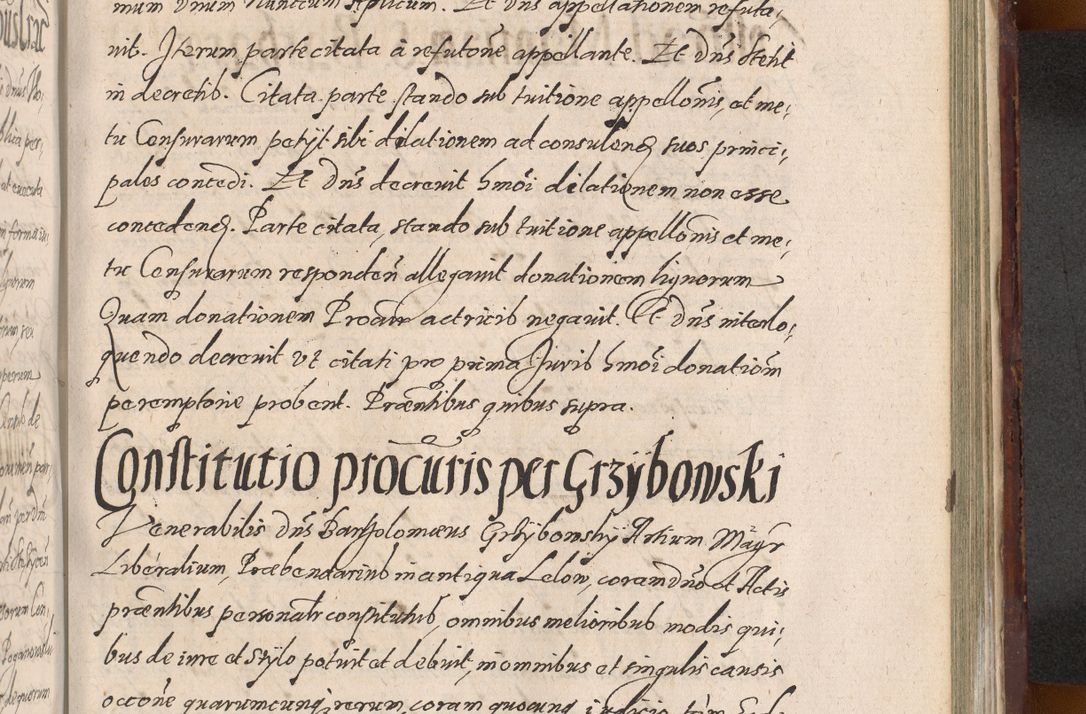 mum Dnum Nuncium Aplicum. Et Dns appellationem refuta,
uit. Iterum parte citata à refutoñe appellante. Et Dns stetit
in decretis. Citata parte stando sub tuitione appellonis, et me,
tu Censurarum petyt sibi dilationem ad consulend suos princi,
pales concedi. Et Dns decreuit hmoi dilationem non esse
concedend. Parte citata, stando sub tuitione appellonis et me,
tu Censurarum responden allegauit donationem lignorum
Quam donationem Procur actricis negauit. Et Dns interlo,
quendo decreuit vt citati pro prima Iuris hmoi donationem
peremptorie probent. Præntibus quibus supra.
Constitutio procuris per Grzÿbowski
Venerabilis Dns Bartholomæus Grzÿbowskÿ Artium Magr
Liberalium, Præbendarius in antiqua Lelow, coram Dno et Actis
præntibus personalr constitutus, omnibus melioribus modis qui,
bus de iure et Stylo potuit et debuit, in omnibus et singulis causis
occoñe quarumcunq rerum, coram quocunq iudicio, tam